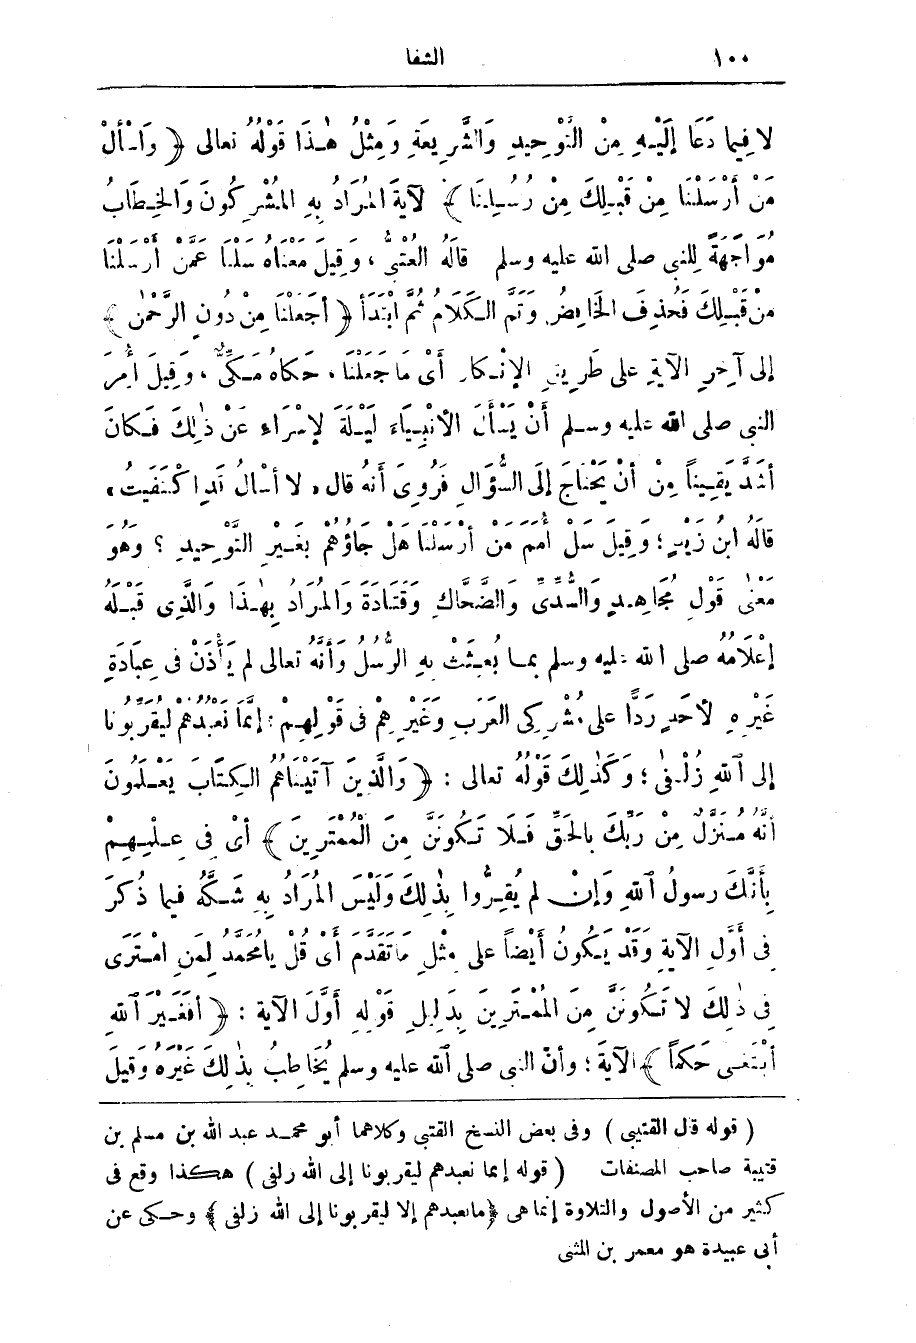 ١٠٠ الشفا
لا فِيما دَعَا إِلَيْهِ مِنْ التَّوْحِيدِ وَالشَّرِيعَةِ وَمِثْلُ هٰذَا قَوْلُهُ تعالى ﴿ وَاسْأَلْ
مَنْ أَرْسَلْنَا مِنْ قَبْلِكَ مِنْ رُسُلِنَا ﴾ لآيَةَ المُرَادُ بِهِ المُشْرِكُونَ وَالخِطَابُ
مُوَاجَهَةً لِلنبى صلى الله عليه وسلم قالَهُ العُتْبىُّ ، وَقِيلَ مَعْنَاهُ سَلْنا عَمَّنْ أَرْسَلْنَا
مِنْ قَبْلِكَ فَحُذِفَ الخَافِضُ وَتَمَّ الكَلَامُ ثُمَّ ابْتَدَأَ ﴿ أَجَعَلْنَا مِنْ دُونِ الرَّحْمٰنِ ﴾
إلى آخِرِ الآيَةِ على طَرِيقِ الإِنْكَارِ أَىْ مَا جَعَلْنَا ، حَكاهُ مَكِّىٌّ ، وَقِيلَ أُمِرَ
النبى صلى الله عليه وسلم أَنْ يَسْأَلَ الأَنْبِيَاءَ لَيْلَةَ لإِسْرَاءِ عَنْ ذٰلِكَ فَكانَ
أَشَدَّ يَقِيناً مِنْ أَنْ يَحْتاجَ إِلَى السُّؤَالِ فَرُوِىَ أَنهُ قال ، لا أَسْالُ قَدِ اكْتَفَيْتُ ،
قالَهُ ابنُ زَيْدٍ ؛ وَقِيلَ سَلْ أُمَمَ مَنْ أَرْسَلْنَا هَلْ جَاؤُهُمْ بِغَيْرِ التَّوْحِيدِ ؟ وَهُوَ
مَعْنٰى قَوْلِ مُجَاهِدٍ وَالسُّدِّىِّ وَالضَّحَّاكِ وَقَتَادَةَ وَالمُرَادُ بِهٰذَا وَالَّذِى قَبْلَهُ
إِعْلَامُهُ صلى الله عليه وسلم بمـا بُعِثَتْ بِهِ الرُّسُلُ وَأَنَّهُ تعالى لم يَأْذَنْ فى عِبَادَةِ
غَيْرِهِ لأَحَدٍ رَدًّا على مُشْرِكِى العَرَبِ وَغَيْرِهِمْ فى قَوْلِهِمْ : إِنَّمَا نَعْبُدُهُمْ لِيُقَرِّبُونا
إلى اللهِ زُلْفٰى ؛ وَكَذٰلِكَ قَوْلُهُ تعالى : ﴿ وَالَّذِينَ آتَيْنَاهُمُ الكِتَابَ يَعْلَمُونَ
أَنَّهُ مُنَزَّلٌ مِنْ رَبِّكَ بِالحَقِّ فَلَا تَكُونَنَّ مِنَ الْمُمْتَرِينَ ﴾ أَىْ فى عِلْمِهِمْ
بِأَنَّكَ رسولُ اللهِ وَإِنْ لم يُقِرُّوا بِذٰلِكَ وَلَيْسَ المُرَادُ بِهِ شَكَّهُ فيما ذُكِرَ
فى أَوَّلِ الآيَةِ وَقَدْ يَكُونُ أَيْضاً على مِثْلِ مَا تَقَدَّمَ أَىْ قُلْ يامُحَمَّدُ لِمَنِ امْتَرَى
فى ذٰلِكَ لا تَكُونَنَّ مِنَ المُمْتَرِينَ بِدَلِيلِ قَوْلِهِ أَوَّلَ الآيَةِ : ﴿ أَفَغَيْرَ اللهِ
أَبْتَغِى حَكَماً ﴾ الآيَةَ ؛ وأَنَّ النبى صلى الله عليه وسلم يُخَاطِبُ بِذٰلِكَ غَيْرَهُ وَقِيلَ
( قوله قال القتيبى ) وفى بعض النسخ القتبى وكلاهما أبو محمد عبد الله بن مسلم بن
قتيبة صاحب المصنفات ( قوله إنما نعبدهم ليقربونا إلى الله زلفى ) هكذا وقع فى
كثير من الأصول والتلاوة إنما هى ﴿ مانعبدهم إلا ليقربونا إلى الله زلفى ﴾ وحكى عن
أبى عبيدة هو معمر بن المثنى